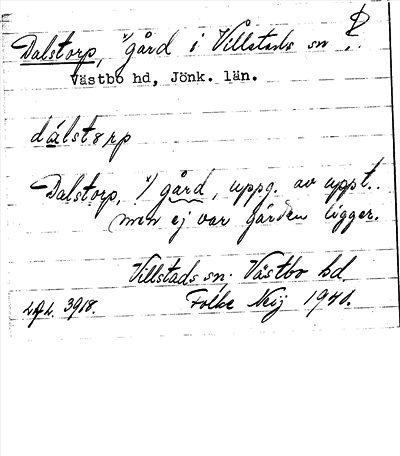 Dalstorp, ˣ⁾gård i Villstads sn
Västbo hd, Jönk. län.
dálstɵrp
Dalstorp, ˣ⁾ gård, uppg. av uppt..
men ej var gården ligger.
Villstads sn. Västbo hd.
3918. Folke Neij 1940.